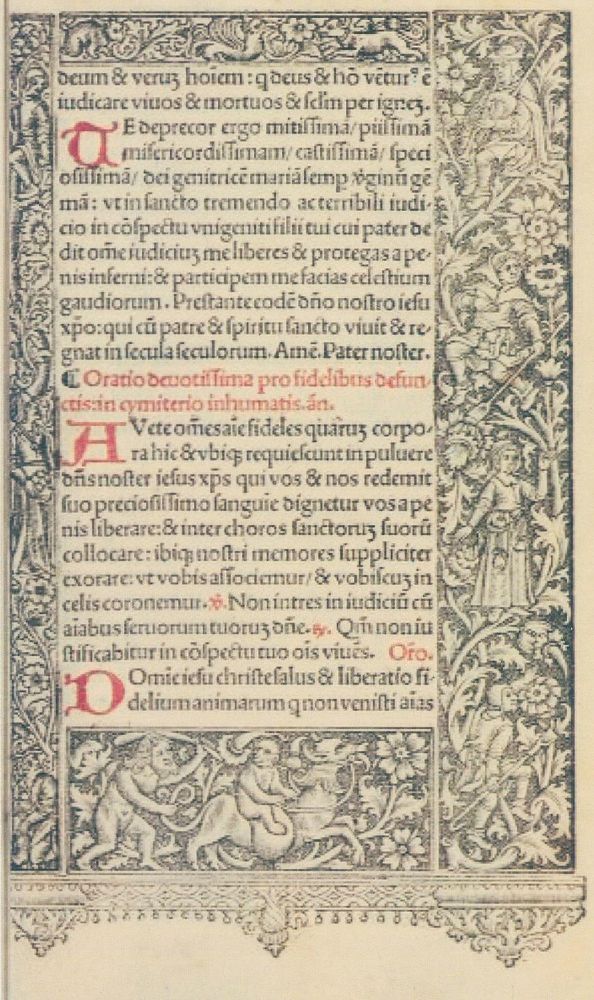 deum & veruꝫ hoīem : q deus & hō vētur⁹ ē
iudicare viuos & mortuos & sclm̄ per igneꝫ.
TE deprecor ergo mitissimā/ piissimā
misericordissimam/ castissimā/ speci
osissimā/ dei genitricē mariā semp v̓ginū gē
mā : vt in sancto tremendo ac terribili iudi-
cio in cōspectu vnigeniti filii tui cui pater de
dit om̄e iudiciuꝫ me liberes & protegas a pe-
nis inferni: & participem me facias celestium
gaudiorum. Prestante eodē dn̄o nostro iesu
xp̄o: qui cū patre & spiritu sancto viuit & re-
gnat in secula seculorum. Amē. Pater noster.
¶ Oratio deuotissima pro fidelibus defun-
ctis: in cymiterio inhumatis. an̄.
AVete om̄es aīe fideles quaruꝫ corpo-
ra hic & vbiqꝫ requiescunt in puluere
dn̄s noster iesus xp̄s qui vos & nos redemit
suo preciosissimo sanguīe dignetur vos a pe
nis liberare: & inter choros sanctoruꝫ suorū
collocare: ibiqꝫ nostri memores suppliciter
exorare: vt vobis associemur/ & vobiscuꝫ in
celis coronemur. ℣. Non intres in iudiciū cū
aīabus seruorum tuoruꝫ dn̄e. ℟. Qm̄ non iu
stificabitur in cōspectu tuo oīs viuēs. Or̄o.
DOmīe iesu christe salus & liberatio fi-
delium animarum q non venisti aīas